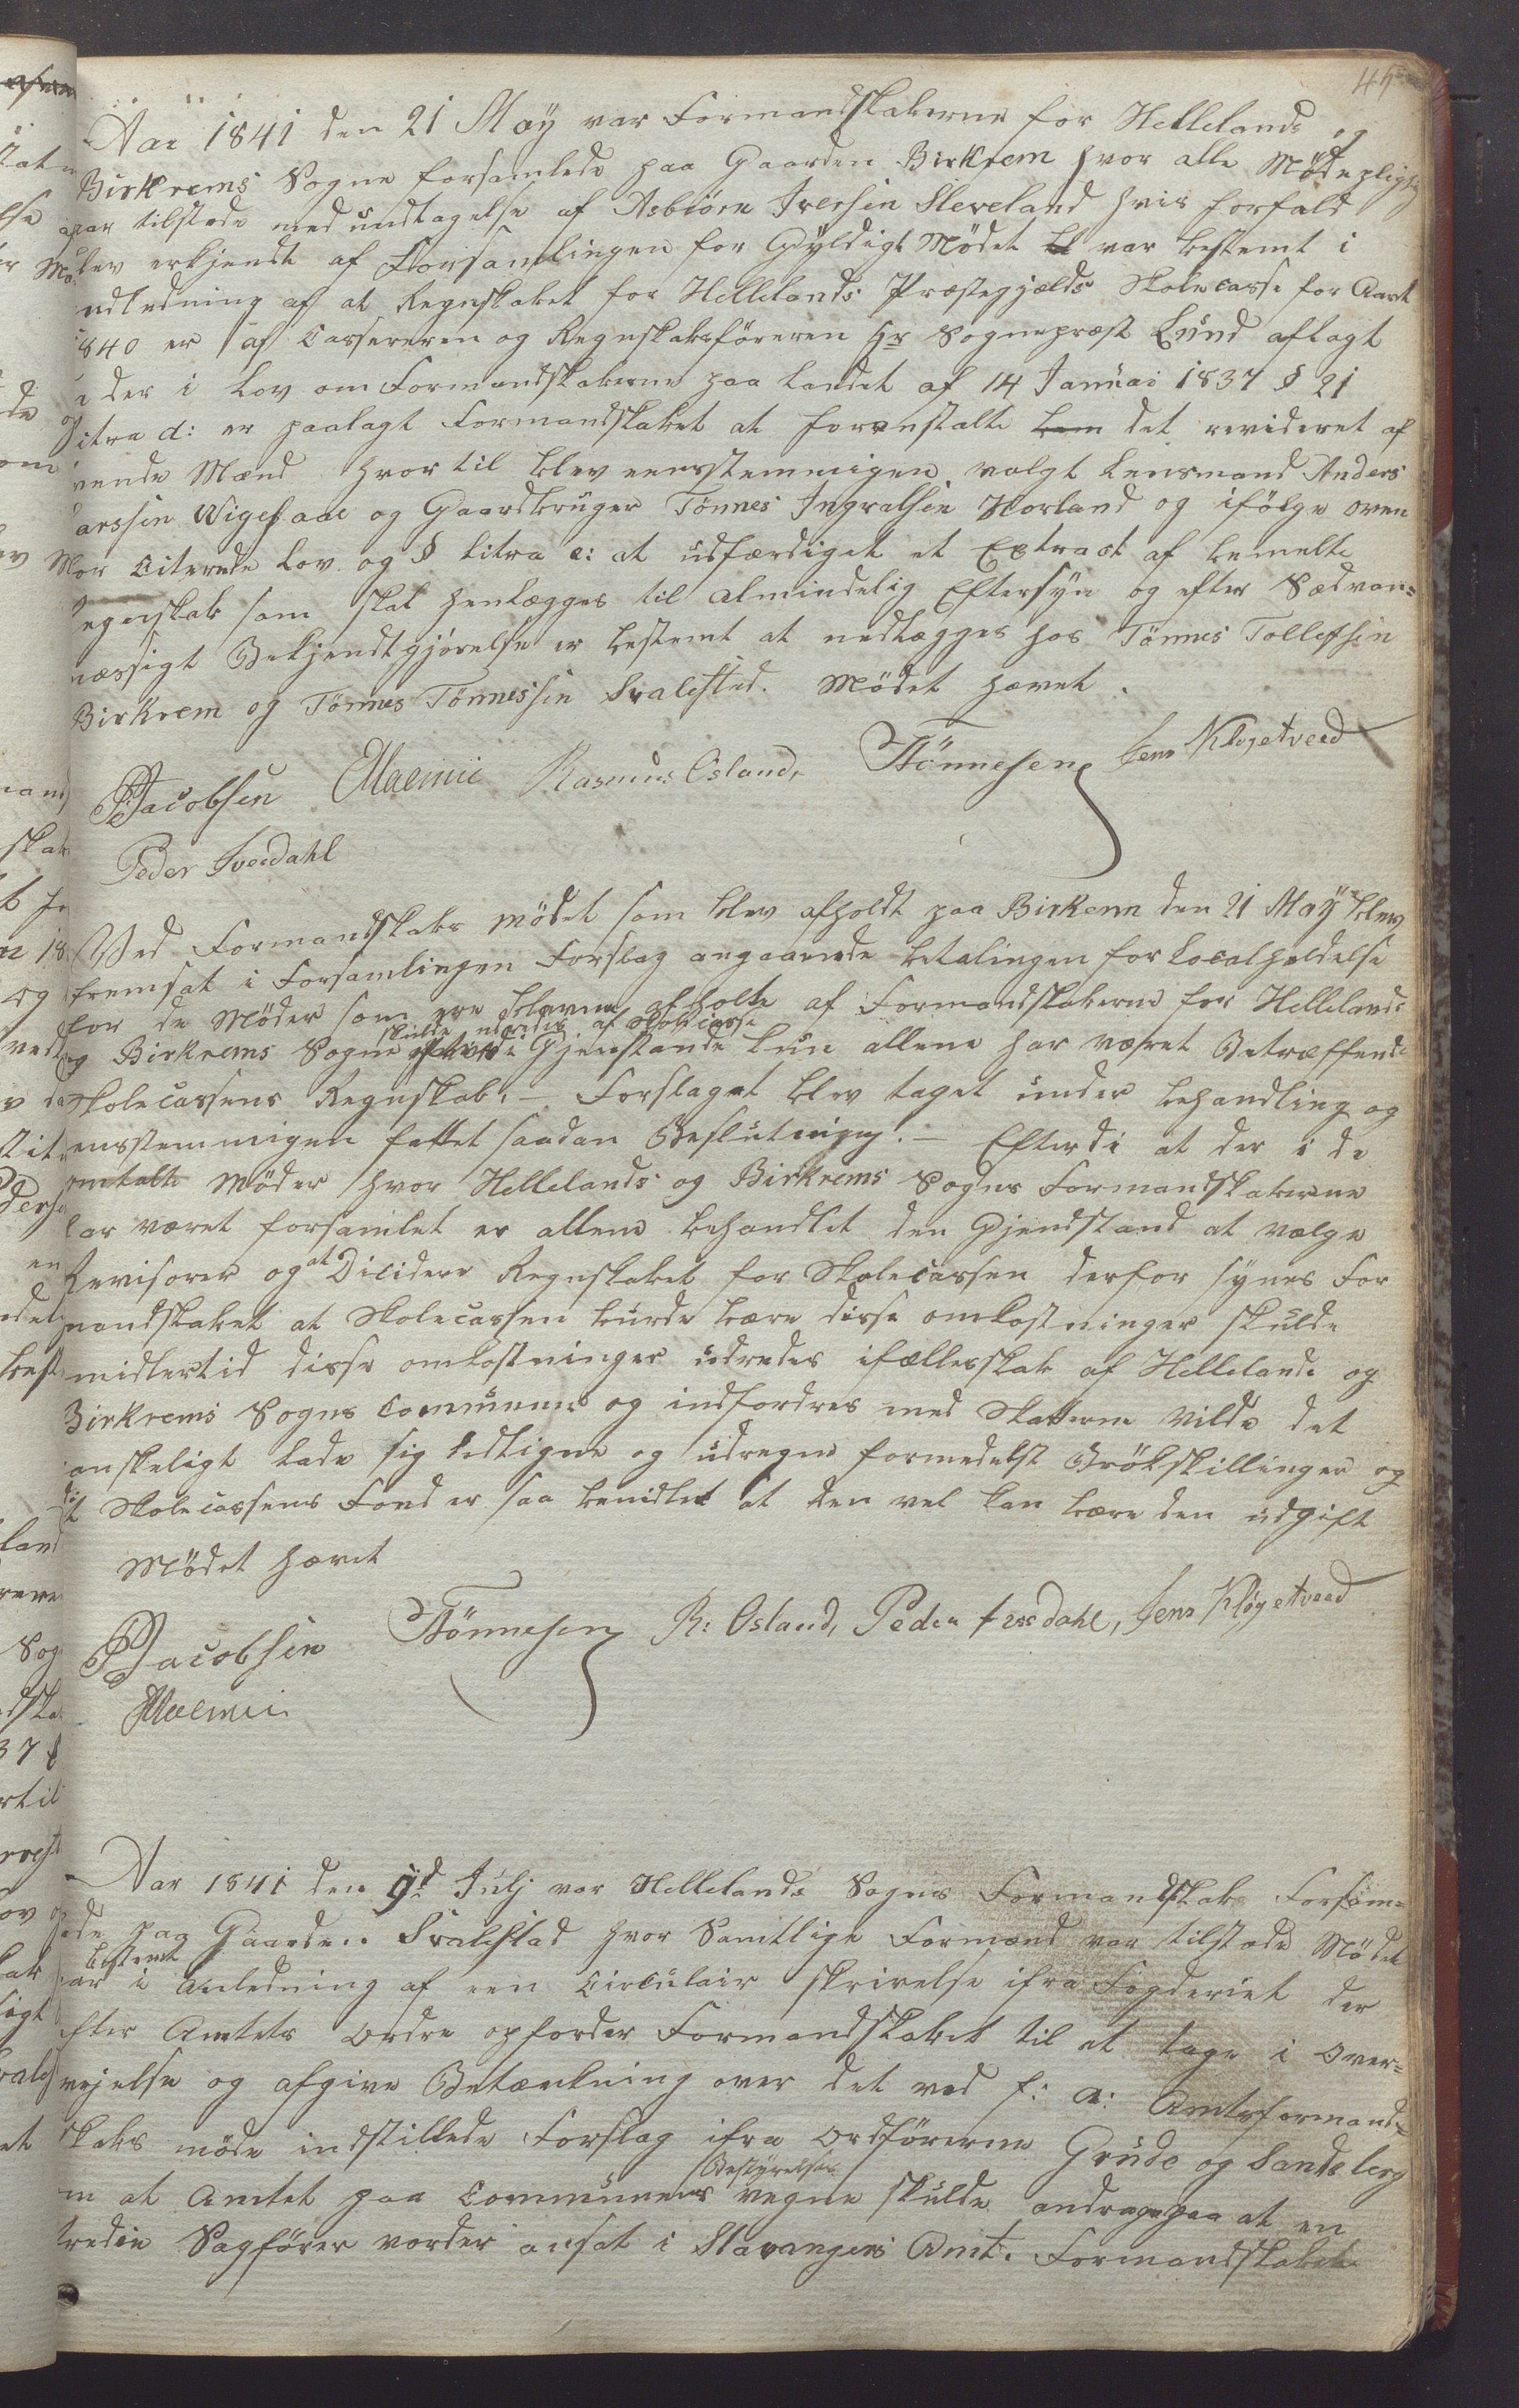 45
Aar 1841 den 21 May var Formandskaberne for Hellelands og
Birkrems Sogne forsamlede paa Gaarden Birkrem hvor alle Mødepligtig
var tilstede med undtagelse af Asbiørn Iversen Sleveland hvis forfald
blev erkjendt af Forsamlingen for Gyldigt Mødet var bestemt i
andledning af at Regnskabet for Hellelands Præstegjælds Skolecasse for Aaret
1840 er af Cassereren og Regnskabsføreren Hr Sognepræst Lund aflagt
der i Lov om Formandskaberne paa Landet af 14 Januar 1837 § 21
Litra d: er paalagt Formandskabet at foranstalte det revideret af
tvende Mænd hvortil blev eensstemmigen valgt Lensmand Anders
Larssen Wigesaae og Gaardbruger Tønnes Ingvalsen Horland og ifølge oven
for Citerede Lov og § Litra e: at udfærdiget et Extract af bemelte
Regenskab som skal henlægges til almindelig Eftersyn og efter Sædvan=
mæssigt Bekjendtgjørelse er bestemt at nedlægges hos Tönnes Tollefsen
Birkrem og Tönnes Tönnessen Svalested. Mødet hævet.
PJacobsen OMaemie Rasmus Osland, TTönnesen Jens Kløgetveed
Peder Iversdahl
Ved Formandskabs mödet som blev afholdt paa Birkerem den 21 May blev
fremsat i Forsamlingen Forslag angaaende betalingen for Localholdelse
for de Møder som ere blevne afholte af Formandskaberne for Hellelands
skulde udredes af Skolecasse
og Birkrems Sogne Gjenstande kun allene har været Betræffende
Skolecassens Regnskab. – Forslaget blev taget under behandling og
eensstemmigen fattet saadan Beslutning. – Efterdi at der i de
omtalte Møder hvor Hellelands og Birkrems Sogns Formandskaberne
har været forsamlet er allene behandlet den Gjendstand at vælge
Revisorer og at Dicidere Regnskabet for Skolecassen derfor synes For
mandskabet at Skolecassen burde bære disse omkostninger skulde
midlertid disse omkostninger udredes ifællesskab af Hellelands og
Birkrems Sogns Communne og indfordres med Skatterne vilde det
vanskeligt lade sig ledligne og udregne formedelst Brökskillinger og
at Skolecassens Fond er saa bemidlet at den vel kan bære den udgift
Mödet hævet
PJacobsen TTönnesen R: Osland, Peder Iversdahl, Jens Kløgetveed
OMaemie
Aar 1841 den 9d Julj var Hellelands Sogns Formandskab Forsam=
lede paa Gaarden Svalestad hvor Samtlige Formænd var tilstede Mödet
bestemt
var i Anledning af een Circulair skrivelse ifra Fogderiet der
efter Amtets Ordre opforder Formandskabet til at tage i Over=
vejelse og afgive Betænkning over det ved f: a: Amtsformand=
skabs møde indstillede Forslag ifra Ordförerne Grude og Sandsberg
Bestyrelses
om at Amtet paa Communens vegne skulde andrage paa at en
tredie Sagfører vorder ansat i Stavangers Amt. Formandskabet